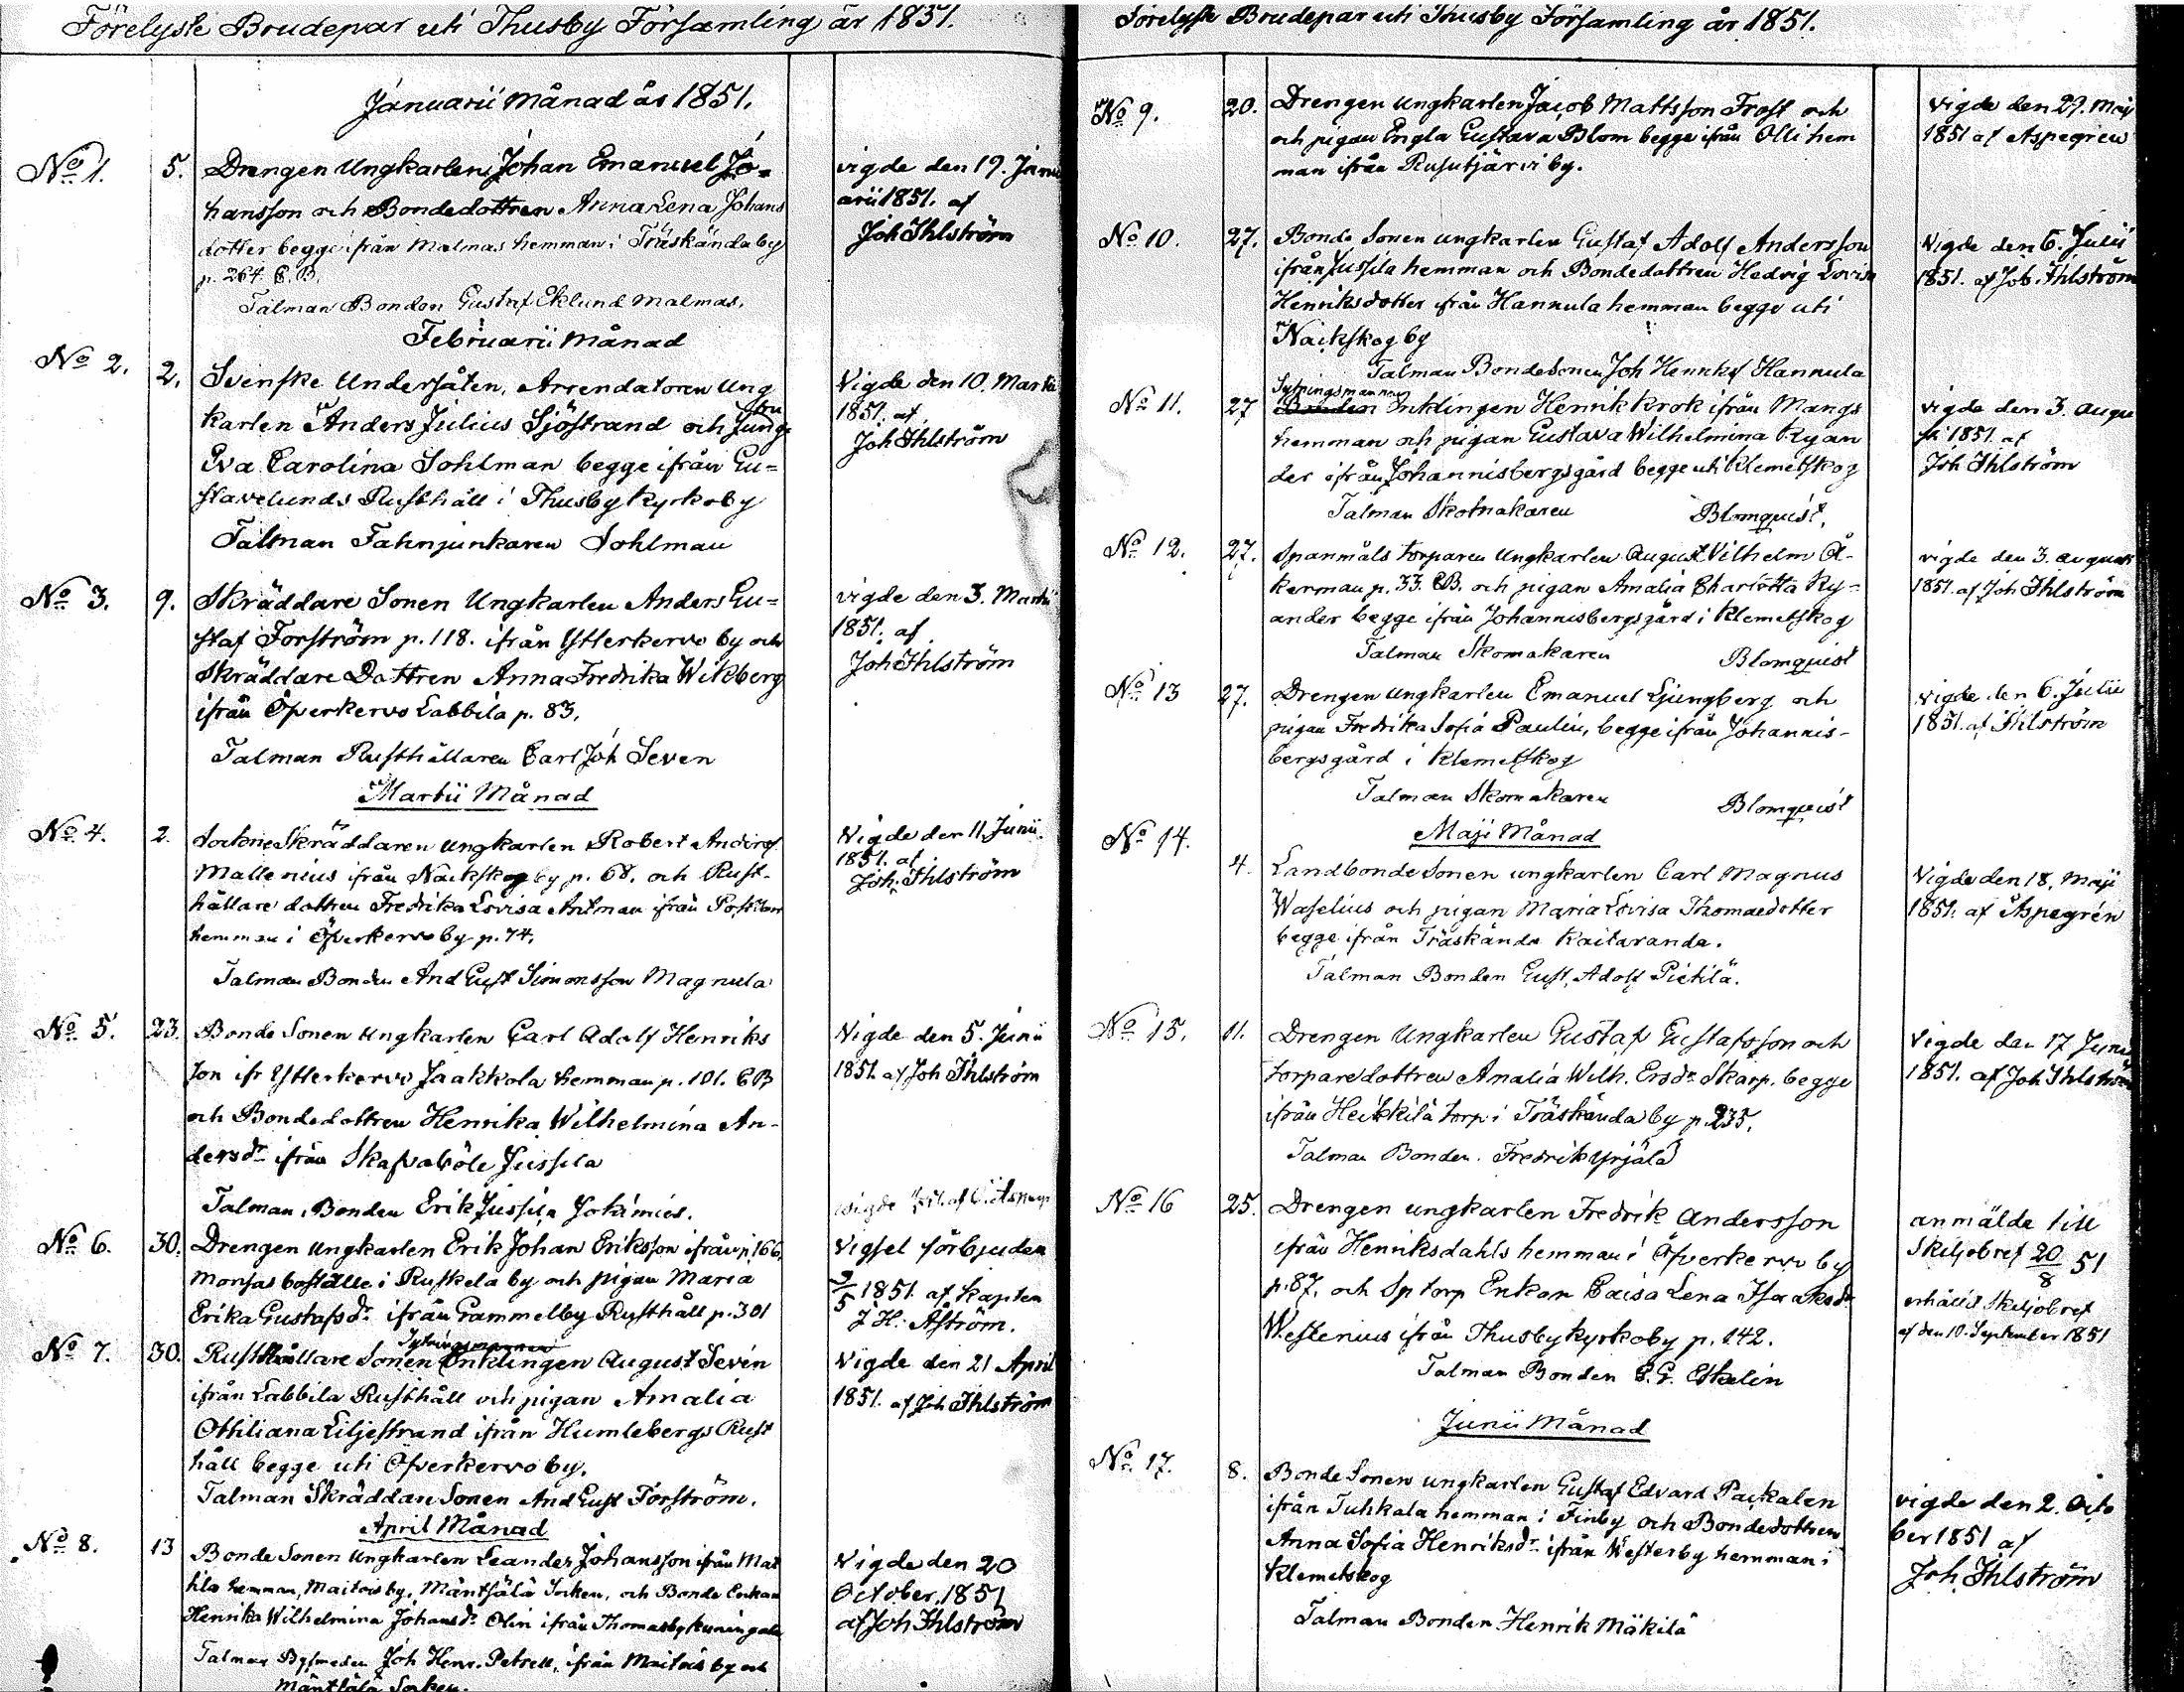 Förelyste Brudepar uti Thusby Församling år 1851.
Januarii Månad år 1851.
No 1. 5. Drengen Ungkarlen Johan Emanuel Jo-
hansson och Bondedottren Anna Lena Johans
dotter begge ifrån Malmas hemman i Träskända by
p. 264. C.B.
Talman Bonden Gustaf Eklund Malmas.
vigde den 19. Janu
arii 1851. af
Joh Ihlström
Februarii Månad
No 2. 2. Svenske Undersåten, Arrendatoren Ung
karlen Anders Julius Sjöstrand och Jungfru
Eva Carolina Sohlman begge ifrån Gu=
stavelunds Rusthåll i Thusby Kyrkoby
Talman Fahnjunkaren Sohlman
Vigde den 10. Martii
1851. af
Joh Ihlström
No 3. 9. Skräddare Sonen Ungkarlen Anders Gu=
staf Forström p. 118. ifrån Ytterkervo by och
Skräddare Dottren Anna Fredrika Wikberg
ifrån Öfverkervo Labbila p. 83.
Talman Rusthållaren Carl Joh Seven
vigde den 3. Martii
1851. af
Joh Ihlström
Martii Månad
No 4. 2. Sockne Skräddaren ungkarlen Robert Anders
Mallenius ifrån Näckskog by p. 68. och Rust-
hållare dottren Fredrika Lovisa Antman ifrån
hemman i Öfverkervo by p. 74.
Talman Bonden And Gust Simonsson Magnula
Vigde den 11. Junii
1851. af
Joh. Ihlström
No 5. 23. Bonde Sonen Ungkarlen Carl Adolf Henriks
son ifr Ytterkervo Jaakkola hemman p. 101. CB
och Bondedottren Henrika Wilhelmina An-
dersdr ifrån Skafvaböle Jussila
Talman, Bonden Erik Jussila
Vigde den 5. Junii
1851. af Joh Ihlström
No 6. 30. Drengen Ungkarlen Erik Johan Eriksson ifrån p. 166.
Monsas boställe i Ruskela by och pigan Maria
Erika Gustafsdr ifrån Gammelby Rusthåll p. 301
Vigsel förbjuden
9/5 1851. af Kapten
J H. Åström.
No 7. 30. Sytningsmannen
Rusthållare Sonen Enklingen August Sevén
ifrån Labbila Rusthåll och pigan Amalia
Othiliana Liljestrand ifrån Humlebergs Rust
håll begge uti Öfverkervo by.
Talman Skräddare Sonen And Gust Forström.
Vigde den 21 April
1851. af Joh Ihlström
April Månad
No 8. 13 Bonde Sonen Ungkarlen Leander Johansson ifrån Mat
tila hemman, Maitois by, Mäntsälä Socken, och Bonde Enkan
Henrika Wilhelmina Johansdr Olin ifrån Thomasby Kuningala
Talman Joh Henr. Petrell, ifrån Maitois by och
Mäntsälä Socken.
Vigde den 20
October, 1851
af Joh Ihlström
Förelyste Brudepar uti Thusby Församling år 1851.
No 9. 20. Drengen Ungkarlen Jacob Mattsson Frost och
och pigan Engla Gustava Blom begge ifrån Olli hem
man ifrån Rusutjärvi by.
Vigde den 29. Maji
1851 af Aspegren
No 10. 27. Bonde Sonen ungkarlen Gustaf Adolf Andersson
ifrån Jussila hemman och Bondedottren Hedvig Lovisa
Henriksdotter ifrån Hannula hemman begge uti
Näckskog by
Talman Bondesonen Joh Henriks Hannula
Vigde den 6. Julii
1851. af Joh. Ihlström
No 11. 27 Sytningsmannen
Bonden Enklingen Henrik Krok ifrån Mangs
hemman och pigan Gustava Wilhelmina Kyan
der ifrån Johannisbergsgård begge uti Klemetskog
Talman Skomakaren Blomquist.
vigde den 3. Augu
sti 1851. af
Joh Ihlström
No 12. 27. Spanmåls torparen Ungkarlen August Vilhelm Å-
kerman p. 33. CB. och pigan Amalia Charlotta Ky=
ander begge ifrån Johannisbergsgård i Klemetskog
Talman Skomakaren Blomquist
vigde den 3. Augusti
1851. af Joh Ihlström
No 13 27. Drengen Ungkarlen Emanuel Ljungberg och
pigan Fredrika Sofia Paulin, begge ifrån Johannis-
bergsgård i Klemetskog
Talman Skomakaren Blomquist
vigde den 6. Julii
1851. af Ihlström
Maji Månad
No 14. 4. Landbonde Sonen ungkarlen Carl Magnus
Waselius och pigan Maria Lovisa Thomasdotter
begge ifrån Träskända Kaitaranda.
Talman Bonden Gust. Adolf Pietilä.
Vigde den 18. Maji
1851. af Aspegrén
No 15. 11. Drengen Ungkarlen Gustaf Gustafsson och
torparedottren Amalia Wilh. Ersdr Skarp. begge
ifrån Heikkilä torp i Träskända by p. 235.
Talman Bonden. Fredrik Yrjälä
Vigde den 17 Junii
1851. af Joh Ihlström
No 16 25. Drengen ungkarlen Fredrik Andersson
ifrån Henriksdahls hemman i Öfverkervo by
p. 87, och Sp torp Enkan Caisa Lena Isaaksdr
Westenius ifrån Thusby Kyrkoby p. 142.
Talman Bonden C. G. Eskelin
anmälde till
Skiljobref 20/8 51
erhållit Skiljobref
af den 10. September 1851
Junii Månad
No 17. 8. Bonde Sonen ungkarlen Gustaf Edvard Packalen
ifrån Tuhkala hemman i Finby och Bondedottren
Anna Sofia Henriksdr ifrån Westerby hemman i
Klemetskog
Talman Bonden Henrik Mäkilä
vigde den 2. Octo
ber 1851 af
Joh. Ihlström